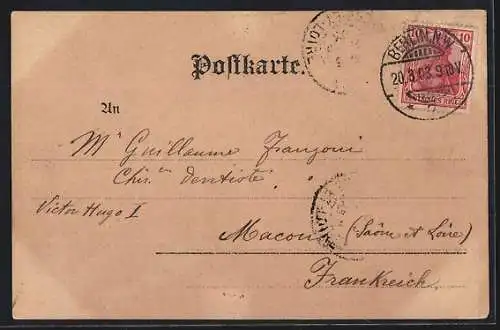 Postkarte.
10
BERLIN N.W.
20.3.03.9-10V.
An
Mr Guillaume Franzoni
Chir. en dentiste
Victor Hugo 1
Macon (Saône et Loire)
Frankreich